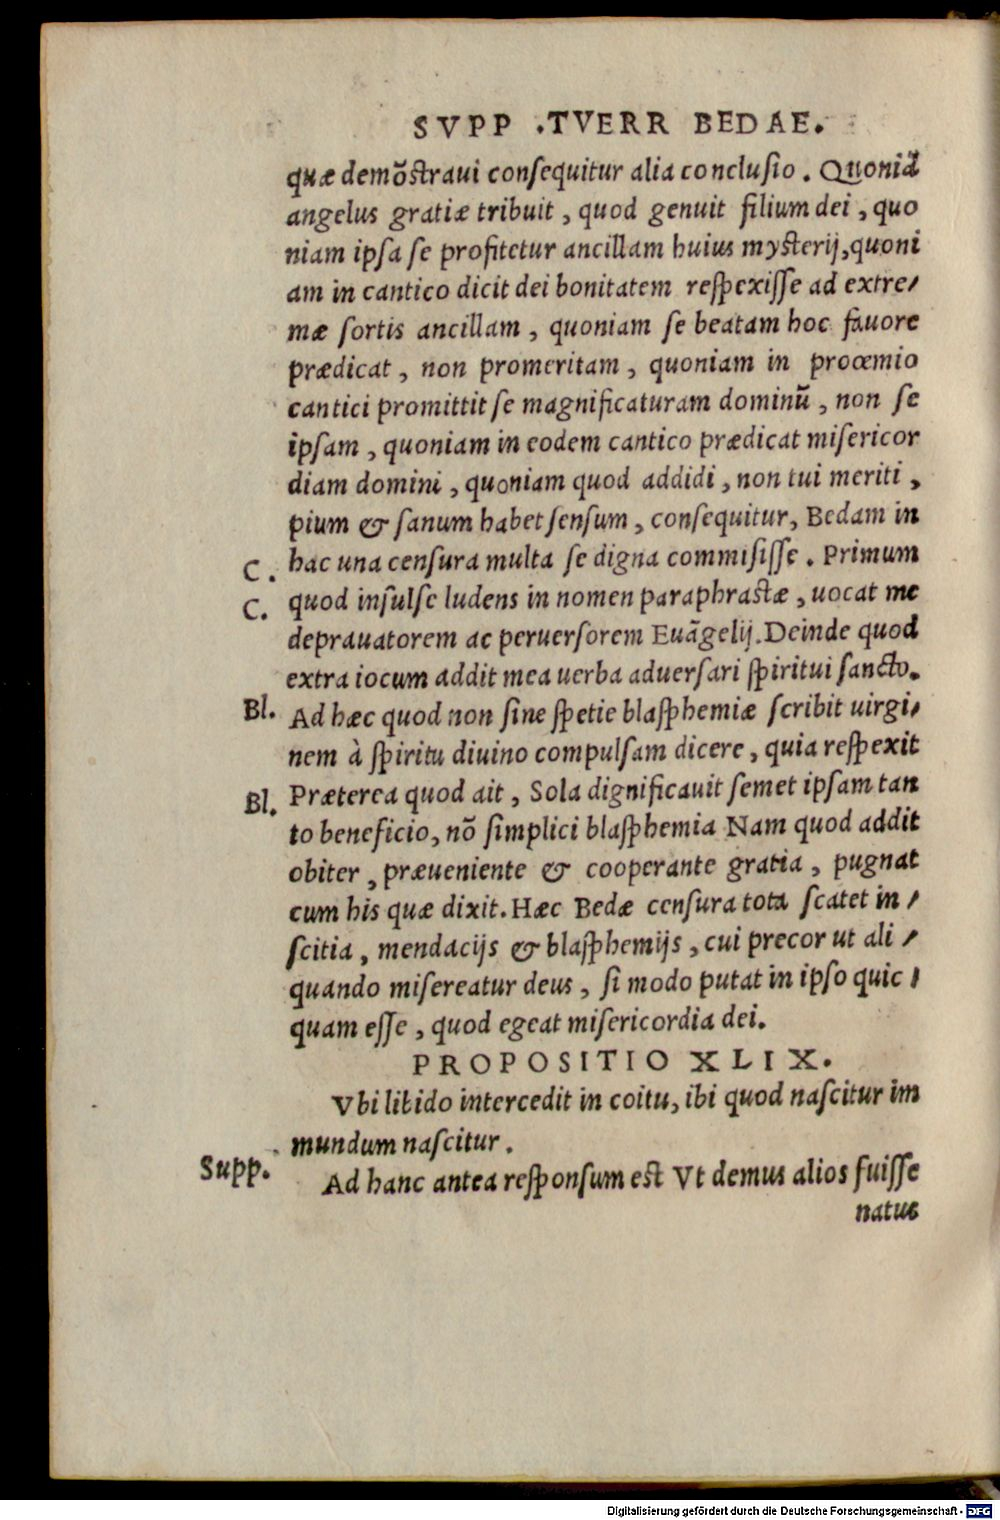 SVPP .TVERR BEDAE.
quæ demõſtraui conſequitur alia concluſio. Quoniã
angelus gratiæ tribuit, quod genuit filium dei, quo
niam ipſa ſe profitetur ancillam huius myſterij, quoni
am in cantico dicit dei bonitatem reſpexiſſe ad extre/
mæ ſortis ancillam, quoniam ſe beatam hoc fauore
prædicat, non promeritam, quoniam in proœmio
cantici promittit ſe magnificaturam dominũ, non ſe
ipſam, quoniam in eodem cantico prædicat miſericor
diam domini, quoniam quod addidi, non tui meriti,
pium & ſanum habet ſenſum, conſequitur, Bedam in
C. hac una cenſura multa ſe digna commiſiſſe. Primum
C. quod inſulſe ludens in nomen paraphraſtæ, uocat me
deprauatorem ac peruerſorem Euãgelij. Deinde quod
extra iocum addit mea uerba aduerſari ſpiritui ſancto.
Bl. Ad hæc quod non ſine ſpetie blaſphemiæ ſcribit uirgi/
nem à ſpiritu diuino compulſam dicere, quia reſpexit
Bl. Præterea quod ait, Sola dignificauit ſemet ipſam tan
to beneficio, nõ ſimplici blaſphemia Nam quod addit
obiter, præueniente & cooperante gratia, pugnat
cum his quæ dixit. Hæc Bedæ cenſura tota ſcatet in/
ſcitia, mendacijs & blaſphemijs, cui precor ut ali/
quando miſereatur deus, ſi modo putat in ipſo quic/
quam eſſe, quod egeat miſericordia dei.
PROPOSITIO XLIX.
Vbi libido intercedit in coitu, ibi quod naſcitur im
mundum naſcitur.
Supp. Ad hanc antea reſponſum eſt Vt demus alios fuiſſe
natus
Digitalisierung gefördert durch die Deutsche Forschungsgemeinschaft - DFG